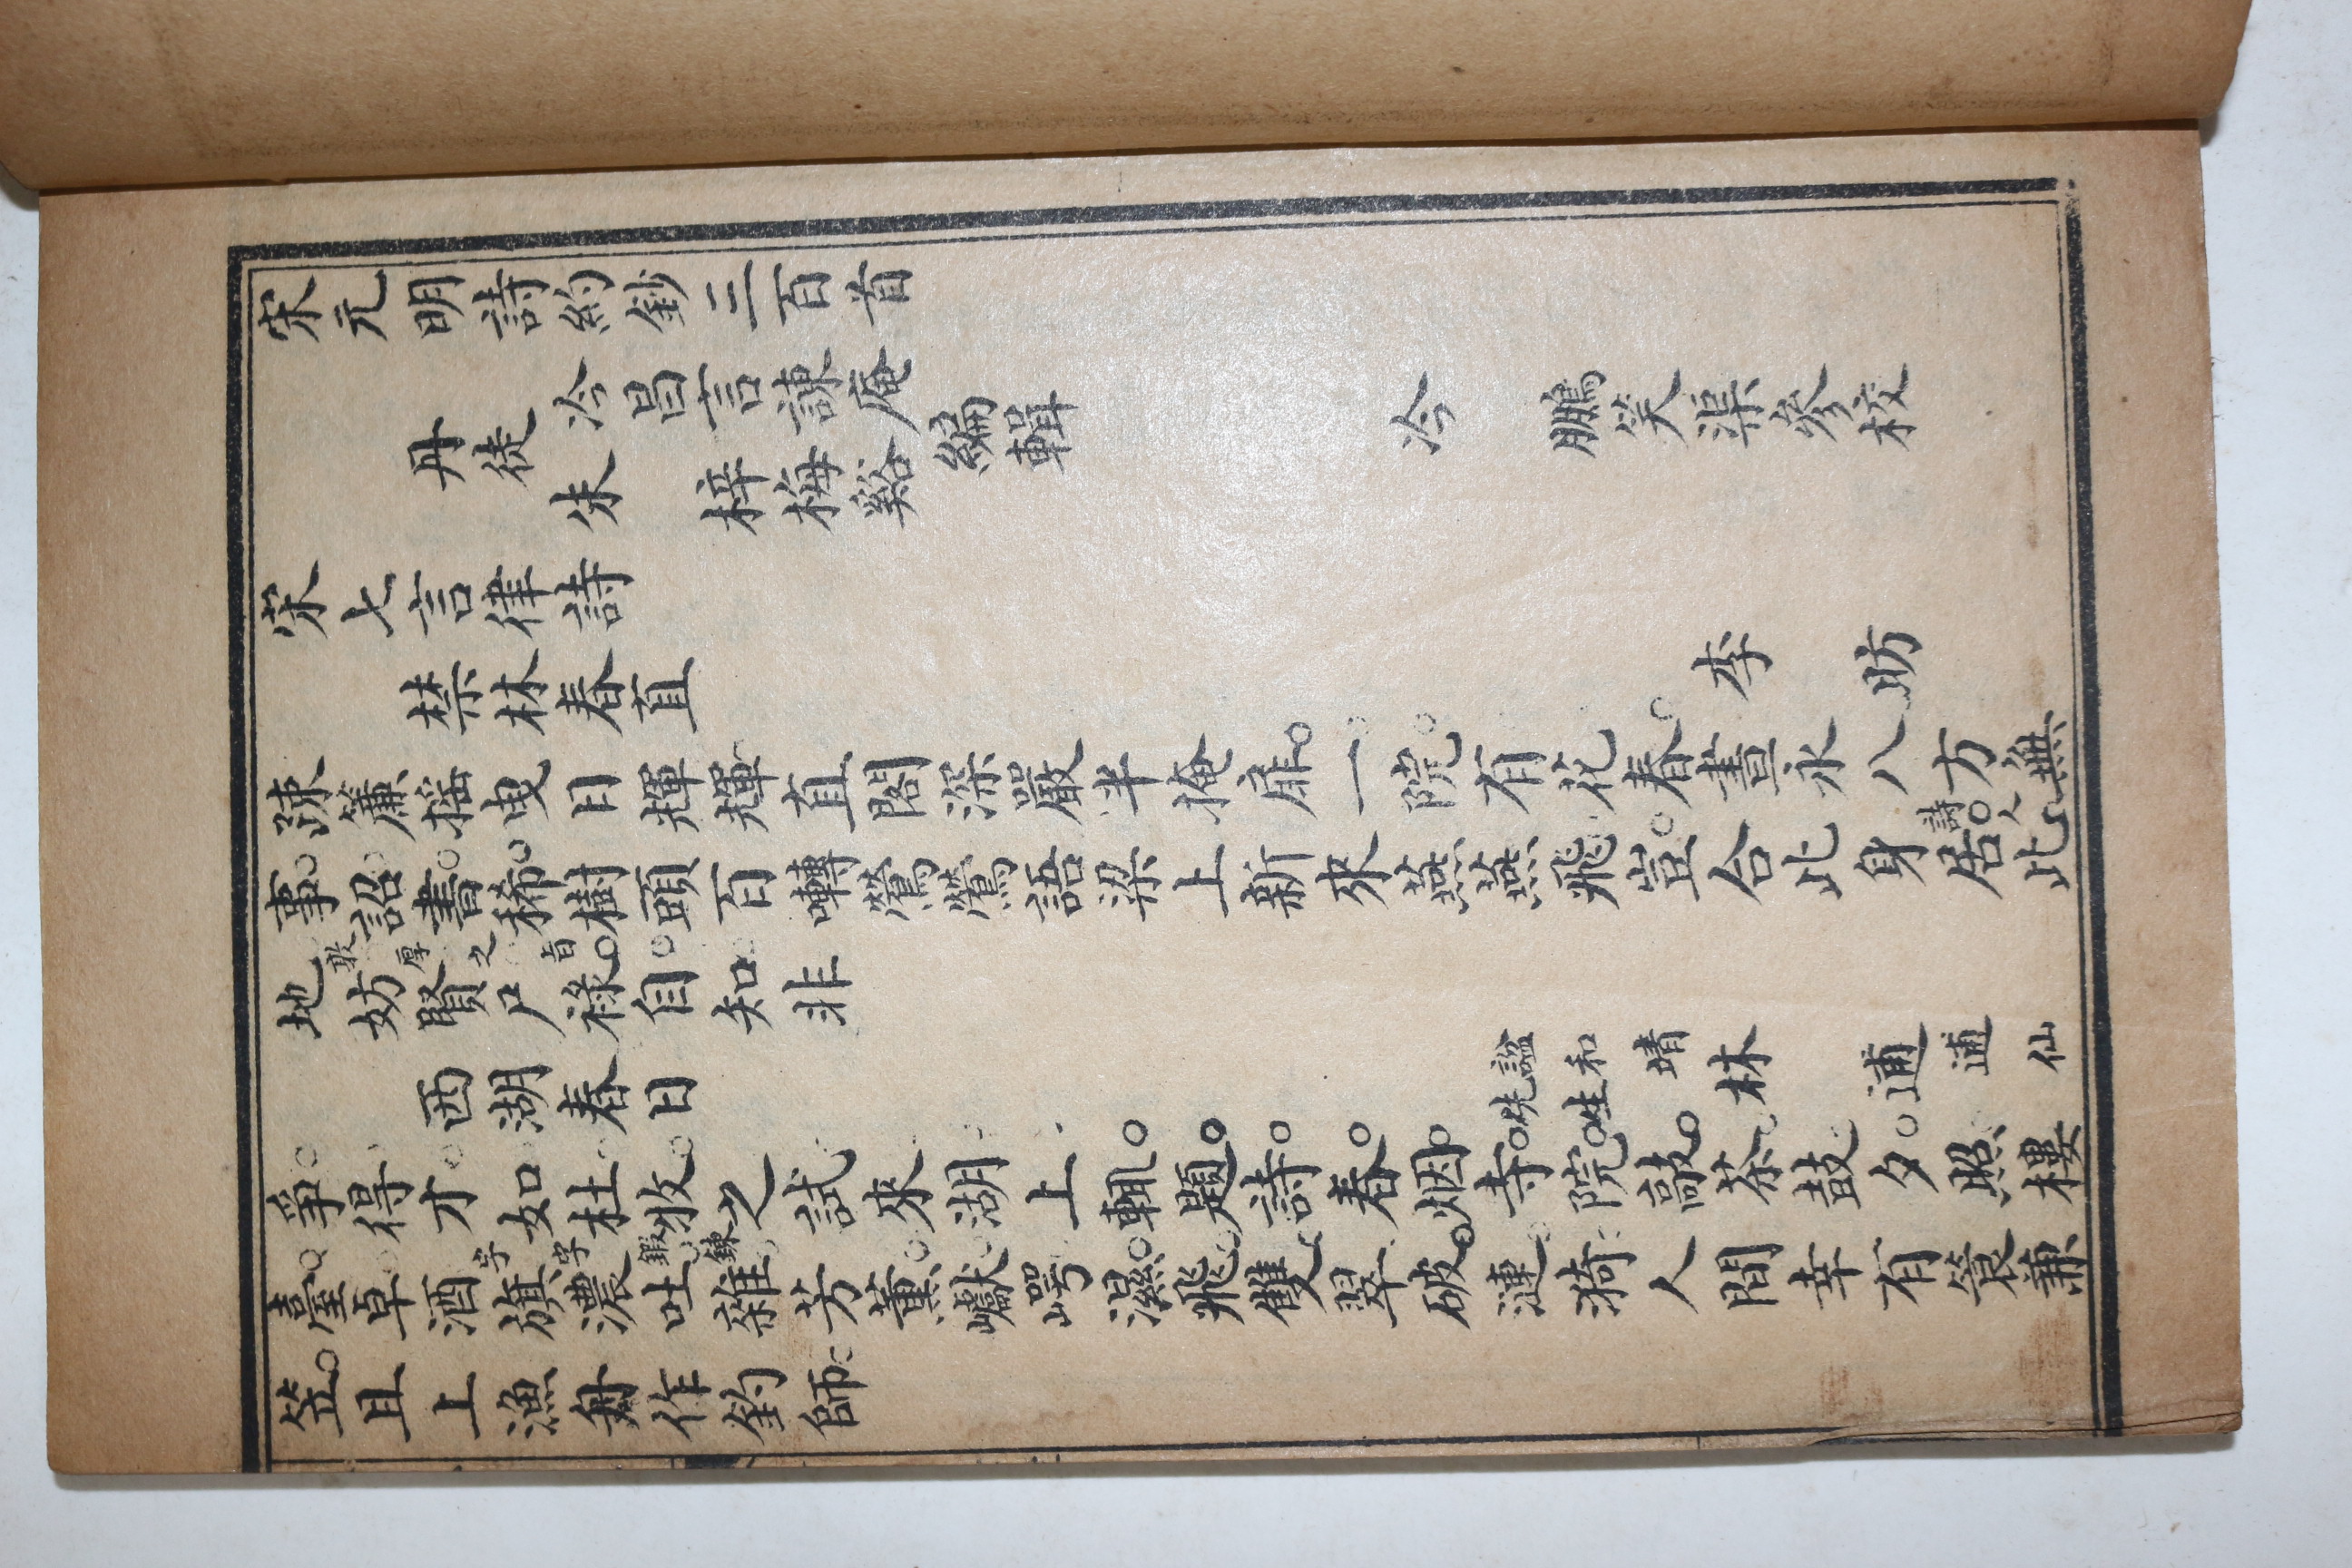 宋元明詩約鈔三百首
丹徒
冷昌言諫庵
朱梓梅谿
編輯
冷鵬笑渠參校
宋七言律詩
禁林春直
李昉
疎簾搖曳日輝輝直閣深嚴半掩扉一院有花春晝永八方無
事詔書稀樹頭百囀鶯鶯語梁上新來燕燕飛豈合此身居此
詩人
敦厚之旨
地妨賢尸祿自知非
西湖春日
林逋
逋仙諡和靖先生
爭得才如杜牧之試來湖上輒題詩春烟寺院敲茶鼓夕照樓
臺卓酒旗濃吐雜芳薰巘崿濕飛雙翠破漣漪人間幸有簑兼
字字鍛鍊
笠且上漁舟作釣師